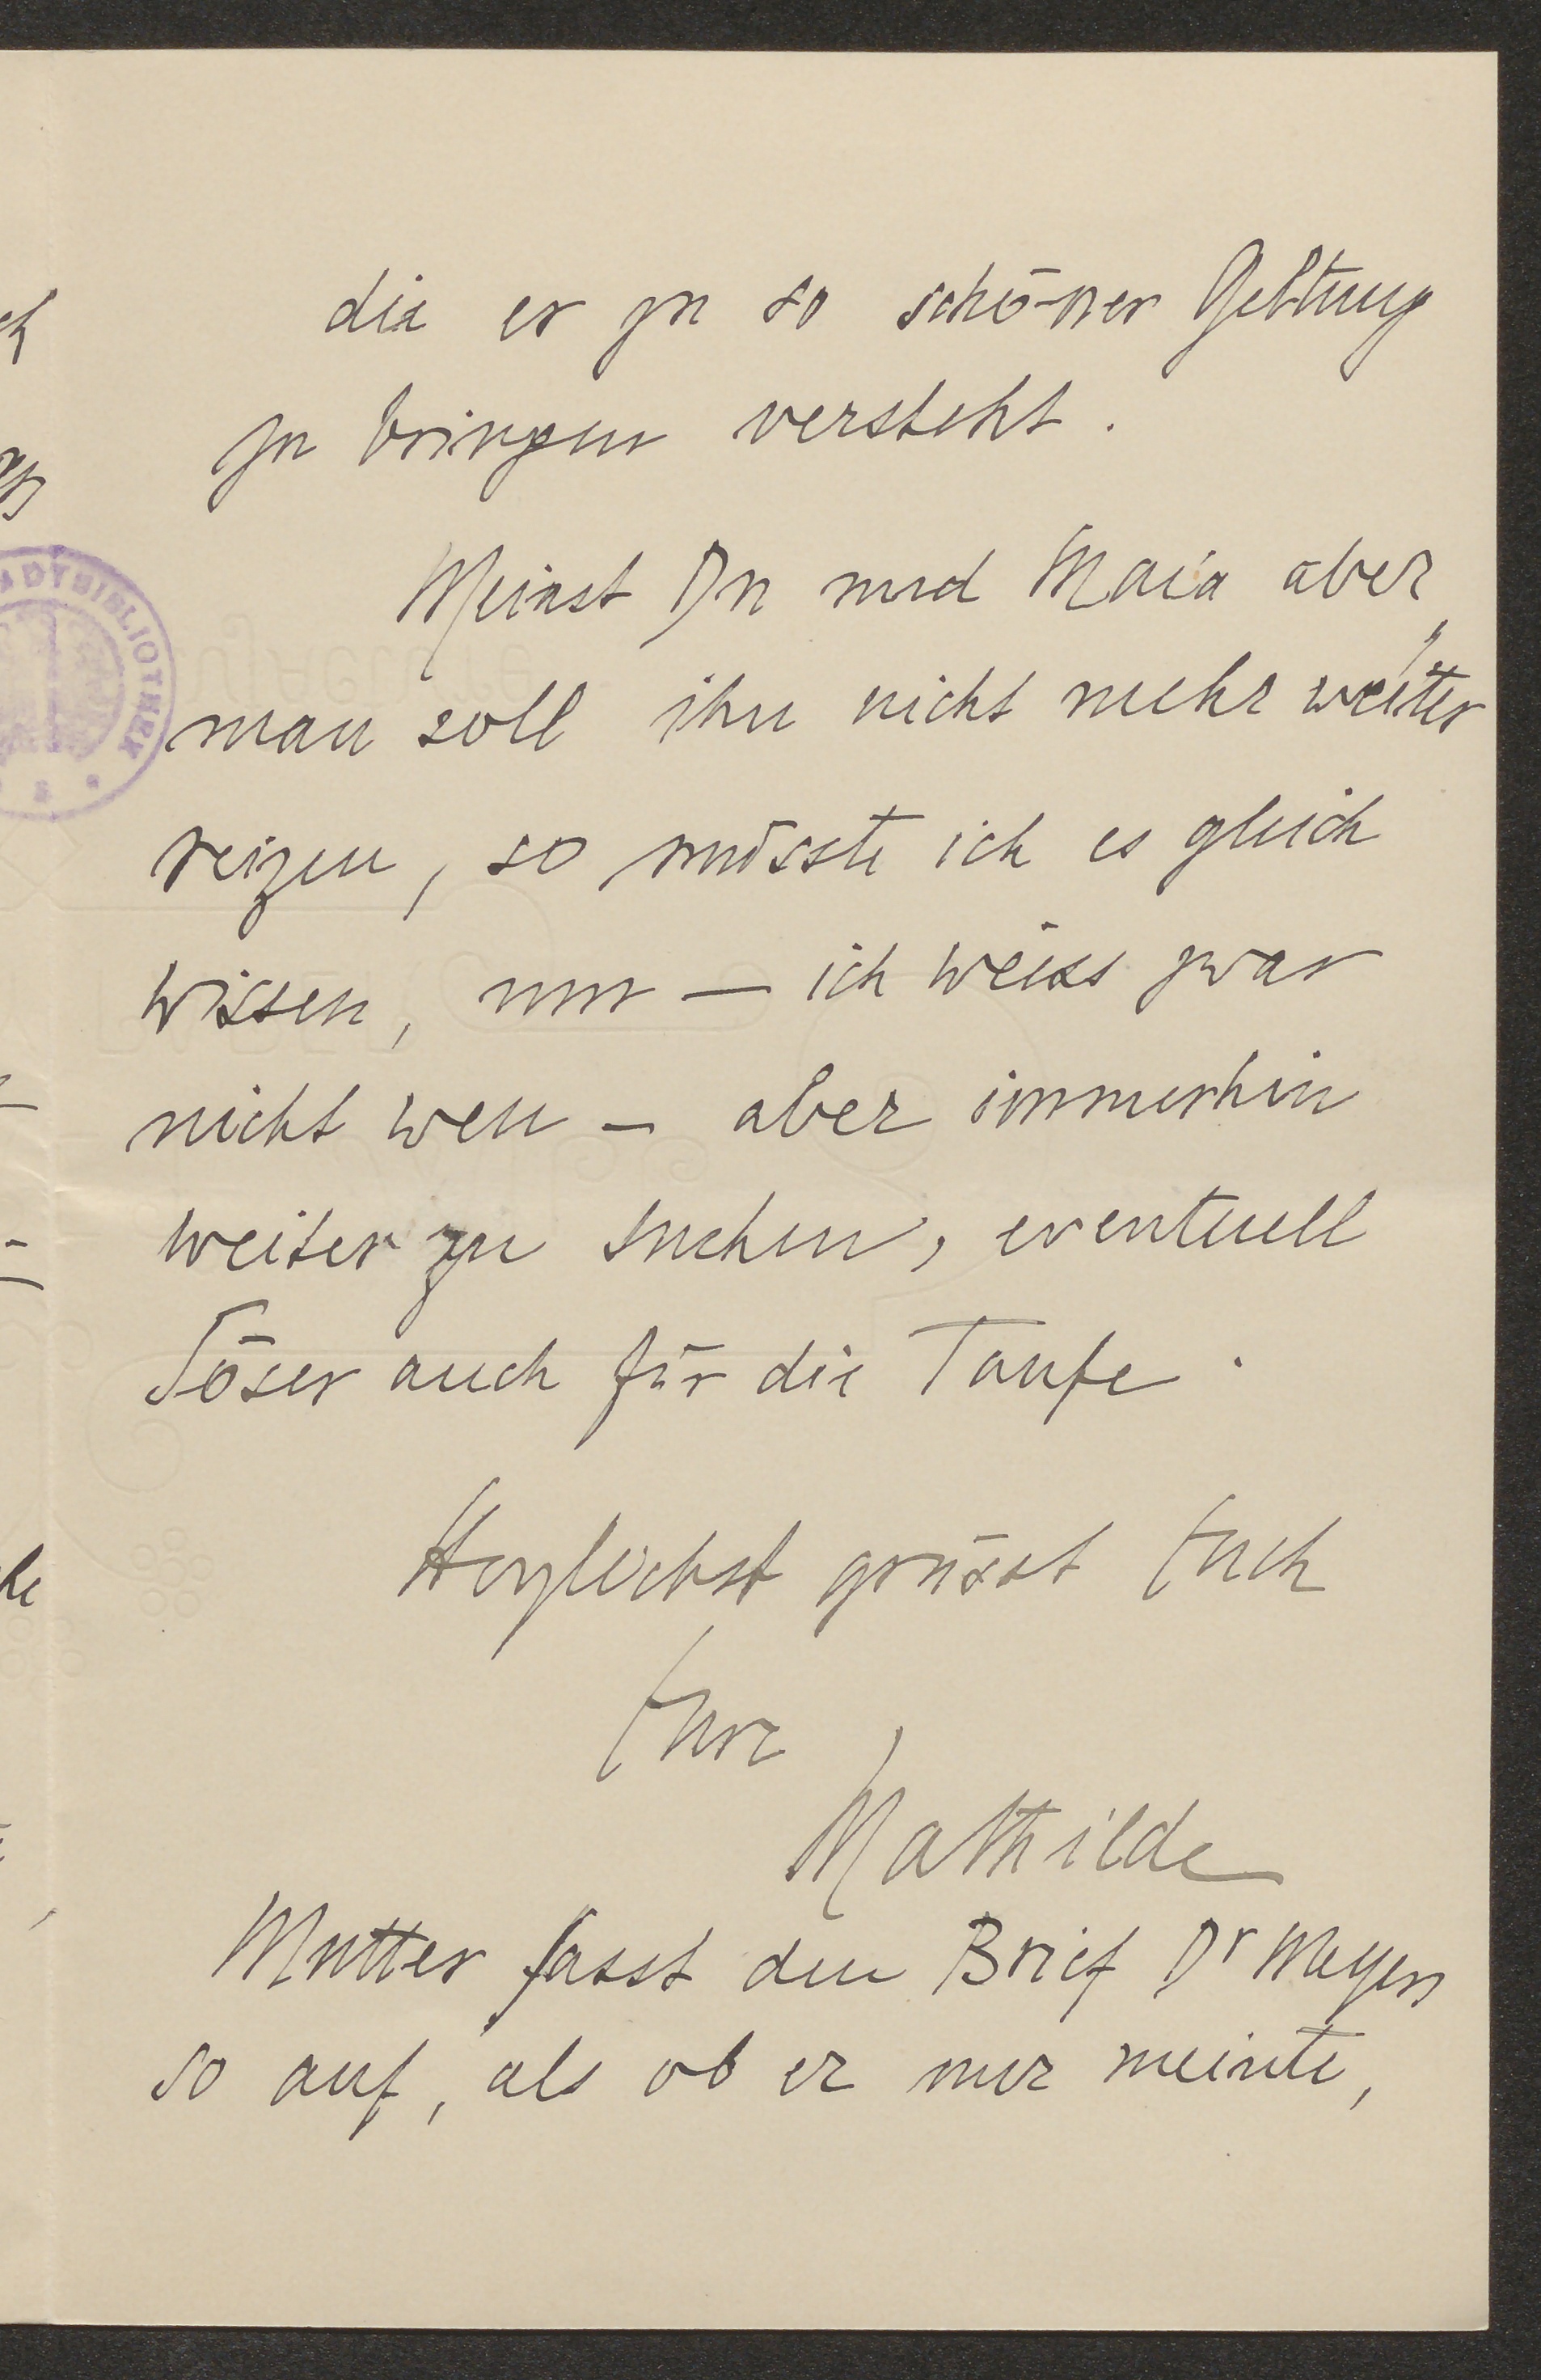 die er zu so schöner Geltung
zu bringen versteht.
Meinst Du und Maia aber,
man soll ihn nicht mehr weiter
reizen, so müsste ich es gleich
wissen, um — ich weiss zwar
nicht wen — aber immerhin
weiter zu suchen, eventuell
Töser auch für die Taufe.
Herzlichst grüsst Euch
Eure
Mathilde
Mutter fasst den Brief Dr Meyers
so auf, als ob er nur meinte,
ADTBIBLIOTHEK